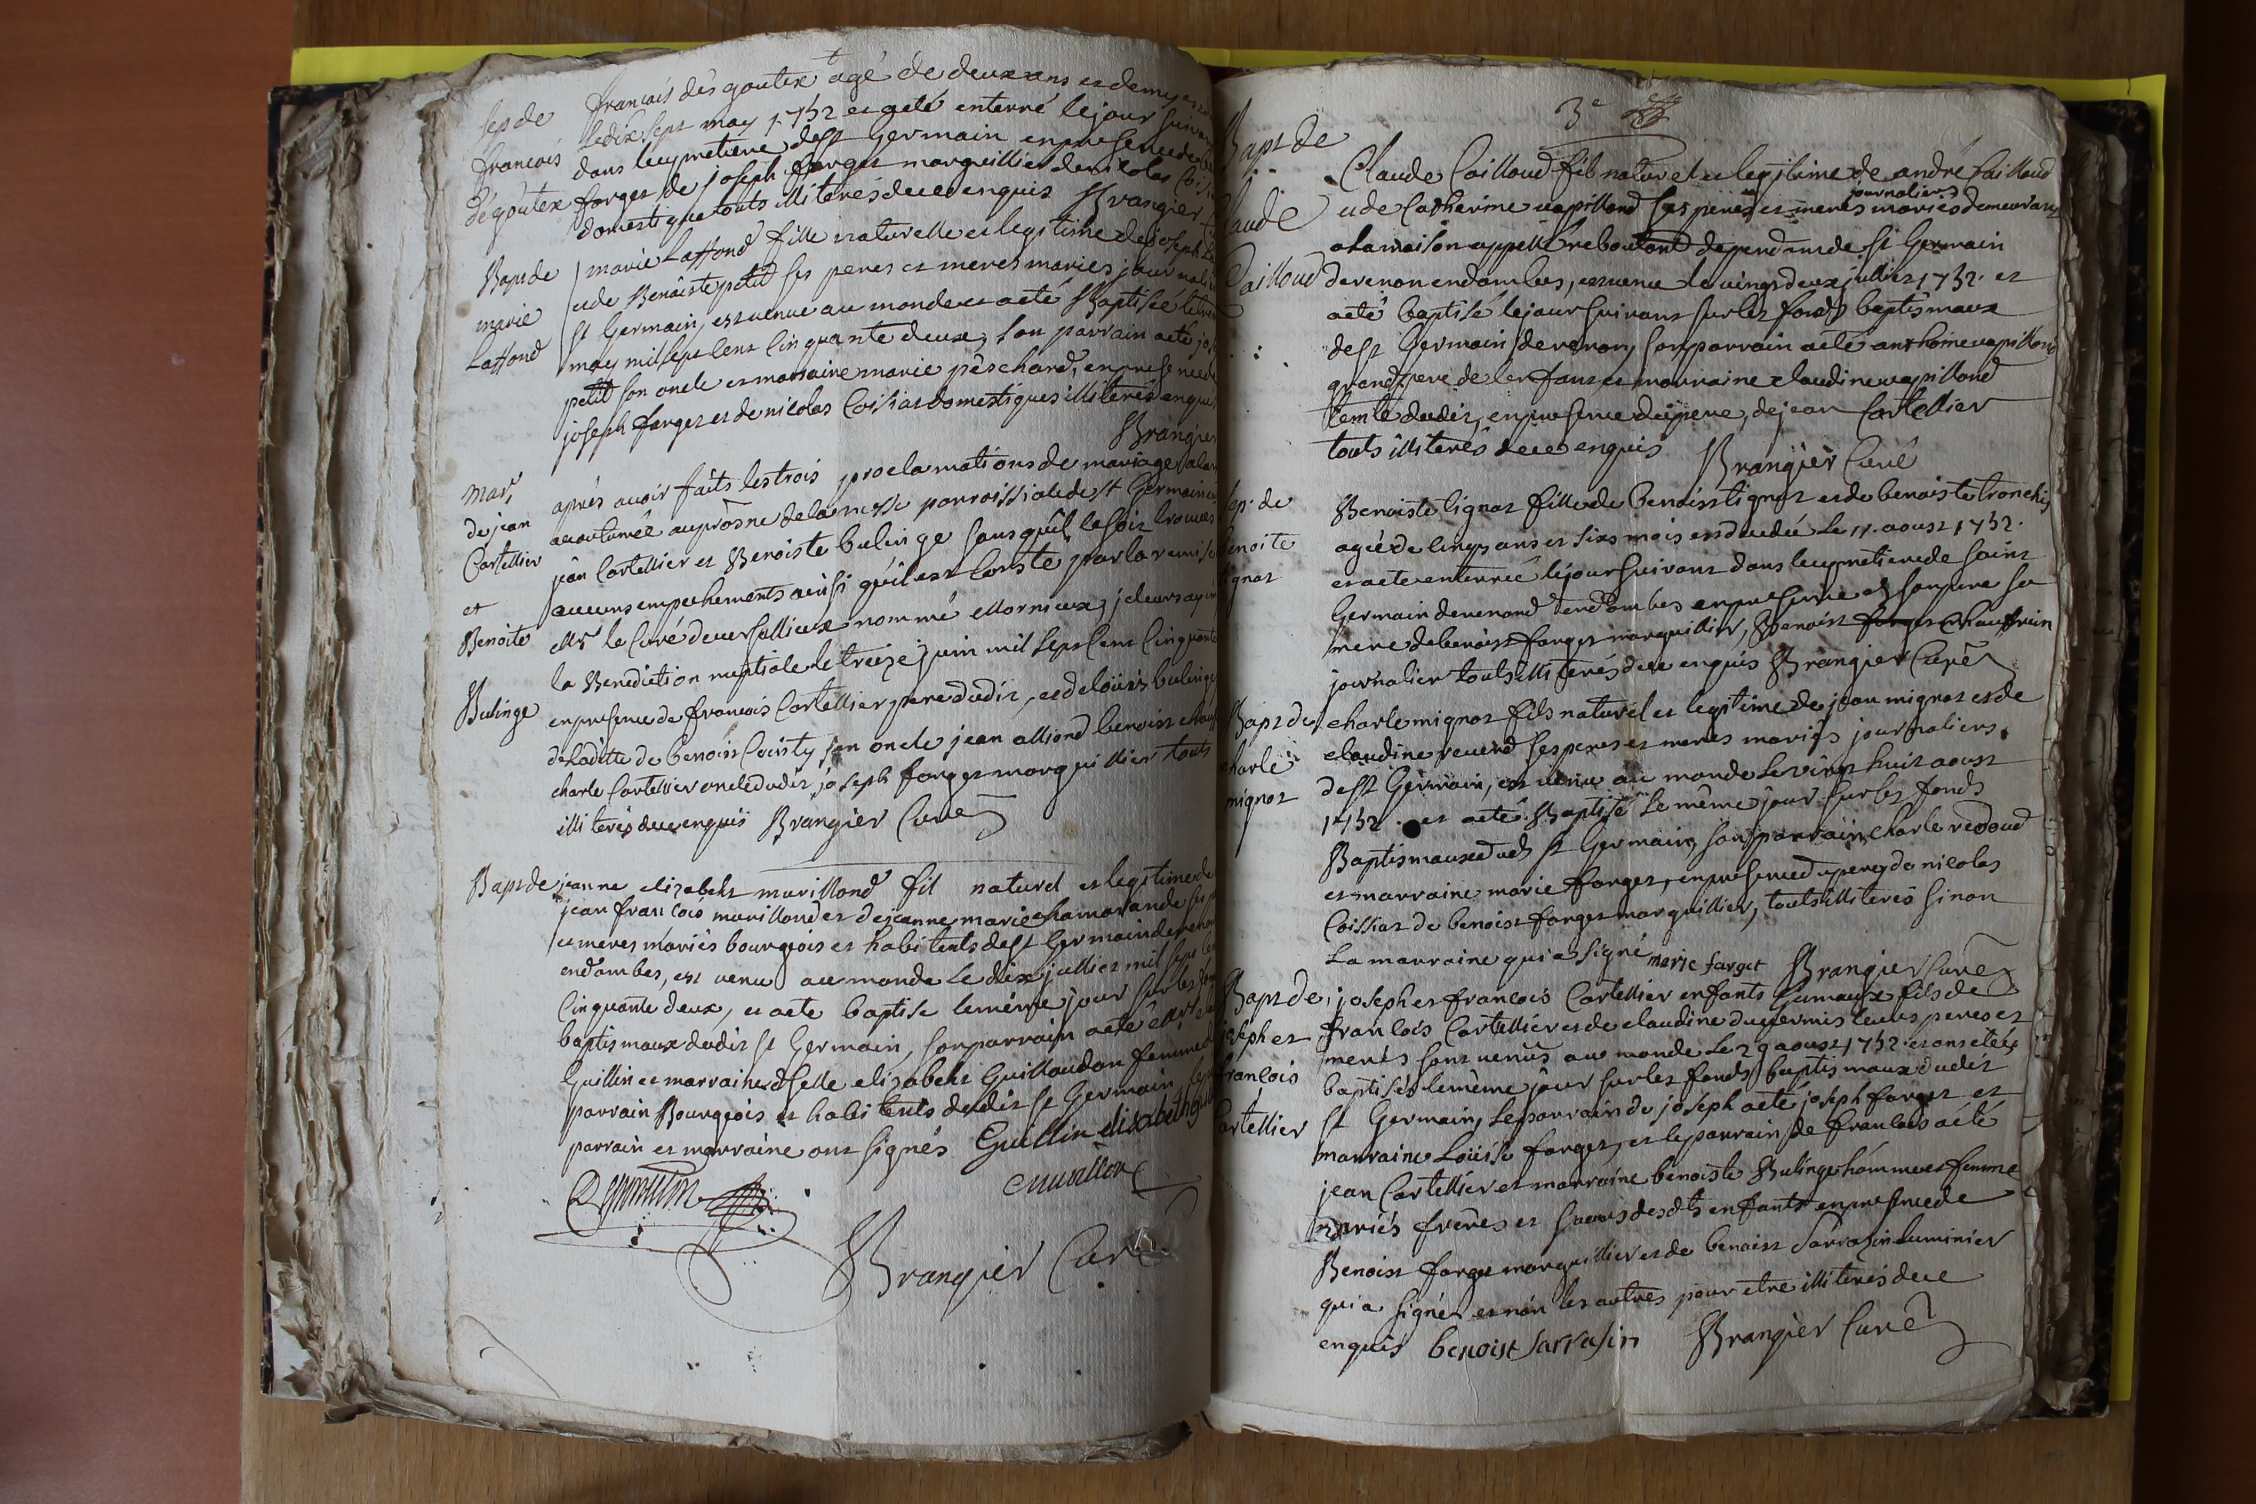 sep de
francois
dégoutex
francois dés goutex agé de deux ans et demy
le dix sept may 1752 et a eté enterré le jour suivant
dans le cymetiere de st Germain en presence de
farges de joseph farges marguillier de nicolas
domestique touts illiterés de ce enquis Brangier
Bap de
marie
Laffond
marie Laffond fille naturelle et legitime de joseph
et de Benoiste petit ses peres et meres mariés journaliers
st Germain, est venue au monde et a eté Baptisée le
may mil sept cent Cinquante deux, son parrain a eté
petit son oncle et marraine marie péschard, en presence de
joseph farges et de nicolas Coissiat domestiques illiterés enquis
Brangier
Mar.
de jean
Cartellier
et
Benoite
Bulinge
aprés avoir faits les trois proclamations de mariage
accoutumée au prosne de la messe parroissiale de st Germain
jean Cartellier et Benoiste bulinge sans qu'il se soit trouvés
aucuns empechements ainsi qu'il est Conste par la remise
Mr le Curé de versallieux nommé Mornieux, je leurs ay
la Benediction nuptiale le treize juin mil sept Cent Cinquante
en presence de francois Cartellier pere dudit, et de loüis bulinge
de laditte de benoist Cointy son oncle jean alliond benoist
charle Cartellier oncle dudit joseph farges marguillier touts
illiterés de ce enquis Brangier Curé
Bap de jeanne elizabeht murillond fil naturel et legitime de
jean francois murillond et de jeanne marie chamarande ses
et meres mariés bourgeois et habitents de st Germain de renon
en dombes, est venu au monde le dix juillet mil sept
Cinquante deux, et a eté baptisé le méme jour sur les
baptismaux dudit st Germain, son parrain a eté Mr
Guillin et marraine dselle elizabeht Guillaudon femme
parrain Bourgeois et habitents dudit st Germain,
parrain et marraine ont signés Guillin elizabeth
Brangier Curé
3e
Bapt de
Claude
Caillaud
Claude Caillaud fils naturel et legitime de andré Caillaud
journaliers
et de Catherine vapilliond ses peres et meres mariés demeurans
a la maison appellé reboutant dependante de st Germain
de renon en dombes, est venu le vingt deux juillet 1752. et
a eté baptisé le jour suivant sur les fonds baptismaux
de st Germain de renon, son parrain a eté anthoine vapilliond
grand pere de lenfant et marraine claudine vapilliond
tente dudit, en presence du pere, de jean Cartellier
touts illiterés de ce enquis Brangier Curé
sep. de
benoite
tignat
Benoiste tignat fille de Benoist tignat et de benoiste tranchis
agée de cinqs ans et sixs mois est decedée Le 11. aoust 1752.
et a eté enterrée le jour suivant dans le cymetiere de saint
Germain de renond en dombes en presence de son pere sa
mere de benoist farges marguillier, Benoist farges chauffrein
journalier touts illiterés de ce enquis Brangier Curé
Bapt de
charle
mignot
charle mignot fils naturel et legitime de jean mignot et de
claudine revend ses peres et meres mariés journaliers
de st Germain, est venu au monde le vingt huit aoust
1752 et a eté Baptisé le méme jour sur les fonds
Baptismaux dudt st Germain, son parrain charle redoud
et marraine marie farges, en presence du pere, de nicolas
Coissiat de benoist farges marguillier, touts illiterés sinon
La marraine qui a signé marie farget Brangier Curé
Bapt de
joseph et
francois
Cartellier
joseph et francois Cartellier enfants Gumaux fils de
francois Cartellier et de claudine duvermis leurs peres et
merés sont venus au monde le 29 aoust 1752. et ont etés
baptisés le méme jour sur les fonds baptismaux dudit
st Germain, le parrain de joseph a eté joseph farges et
marraine Loüise farges, et le parrain de francois a eté
jean Cartellier et marraine benoiste Bulinge homme et femme
mariés fréres et sueurs desdts enfants en presence de
Benoist farges marguillier et de benoist Sarrasin luminier
qui a signé et non les autres pour etre illiterés de ce
enquis benoist sarrasin Brangier Curé